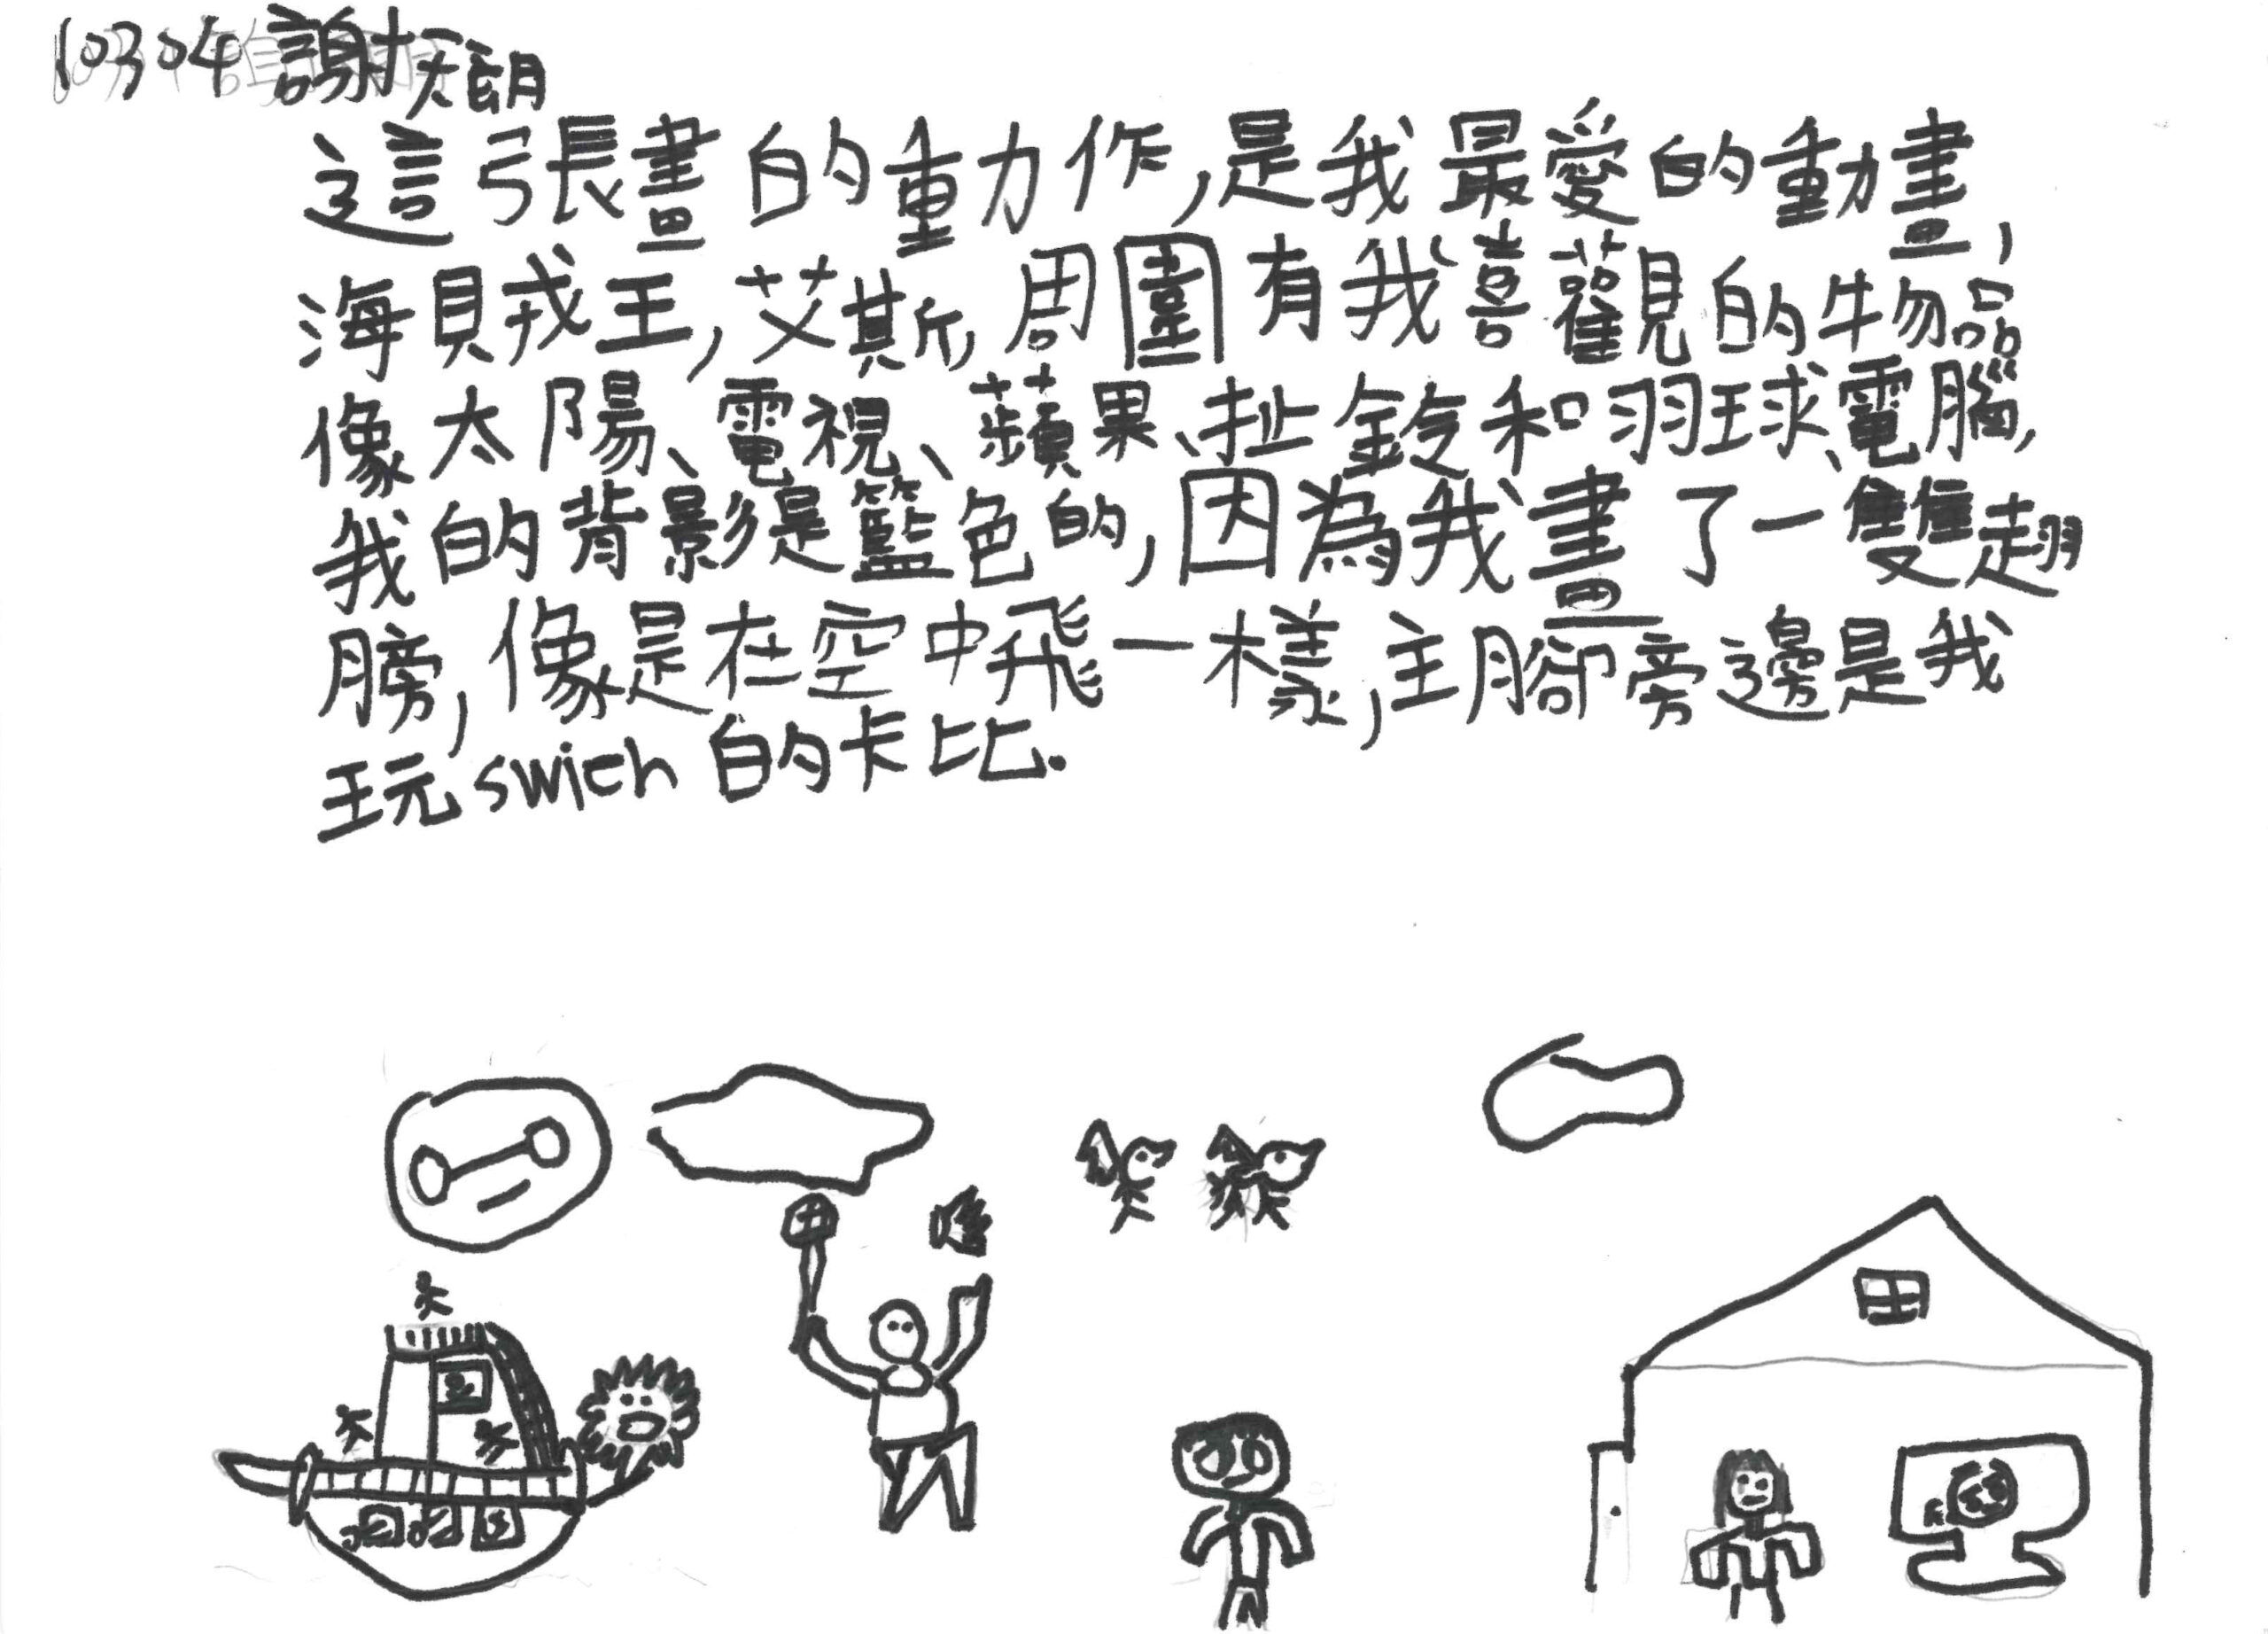 10304 謝
這張畫的動作,是我最愛的動畫,
海貝戎王,艾斯,周圍有我喜觀的物品
像太陽、電視、蘋果、扯鈴和羽球、電腦,
我的背影是籃色的,因為我畫了一雙翅
膀,像是在空中飛一樣,主腳旁邊是我
玩swich的卡比.